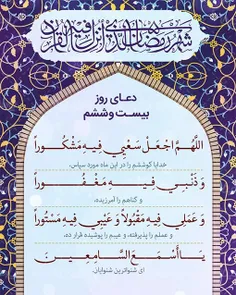 شهر رمضان الذي أنزل فيه القرآن
دعای روز
بیست وششم
اللَّهُمَّ اجْعَلْ سَعْيِي فِيهِ مَشْكُوراً
خدایا کوششم را در این ماه مورد سپاس،
وَ ذَنْبِي فِيهِ مَغْفُوراً
و گناهم را آمرزیده،
وَ عَمَلِي فِيهِ مَقْبُولاً وَ عَيْبِي فِيهِ مَسْتُوراً
و عملم را پذیرفته، و عیبم را پوشیده قرار ده،
يَا أَسْمَعَ السَّامِعِينَ
ای شنواترین شنوایان.